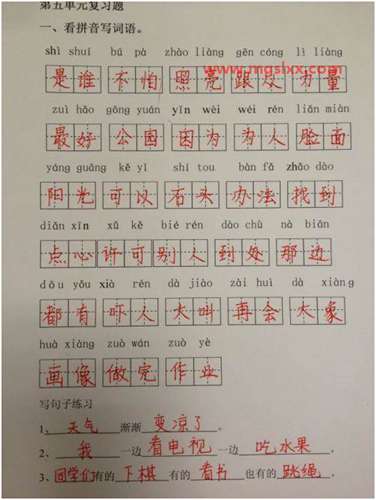 第五单元复习题
一、看拼音写词语。
shì shuí bú pà zhào liàng gēn cóng lì liàng
是谁 不怕 照亮 跟从 力量
www.mgslxx.com
zuì hǎo gōng yuán yīn wèi wéi rén liǎn miàn
最好 公园 因为 为人 脸面
yáng guāng kě yǐ shí tou bàn fǎ zhǎo dào
阳光 可以 石头 办法 找到
diǎn xīn xǔ kě bié rén dào chù nà biān
点心 许可 别人 到处 那边
dōu yǒu xià rén dà jiào zài huì dà xiàng
都有 吓人 大叫 再会 大象
huà xiàng zuò wán zuò yè
画像 做完 作业
写句子练习
1、天气 渐渐 变凉了。
2、我 一边 看电视 一边 吃水果。
3、同学们有的 下棋 有的 看书 也有的 跳绳。